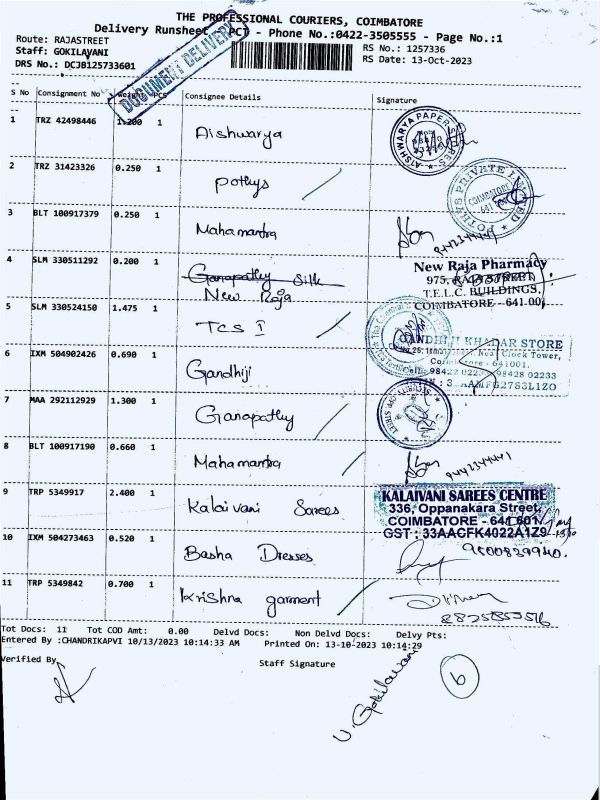 THE PROFESSIONAL COURIERS, COIMBATORE
Delivery Runsheet PCT - Phone No.:0422-3505555 - Page No.:1
Route: RAJASTREET
Staff: GOKILAVANI
DRS No.: DCJB125733601
RS No.: 1257336
RS Date: 13-Oct-2023
DOCUMENT DELIVERY
S No Consignment No Weight PCS Consignee Details Signature
1 TRZ 42498446 1.200 1 Aishwarya
2 TRZ 31423326 0.250 1 Pothys
COIMBATORE
3 BLT 100917379 0.250 1 Mahamantra
4 SLM 330511292 0.200 1 Ganapathy Silk
New Raja
New Raja Pharmacy
975, RAJA STREET,
T.E.L.C. BUILDINGS,
COIMBATORE - 641 001
5 SLM 330524150 1.475 1 TCS I
6 IXM 504902426 0.690 1 Gandhiji
GANDHIJI KHADAR STORE
Near Clock Tower,
Coimbatore - 641001.
98428 02233
7 MAA 292112929 1.300 1 Ganapathy
8 BLT 100917190 0.660 1 Mahamantra
9442344441
9 TRP 5349917 2.400 1 Kalaivani Sarees
KALAIVANI SAREES CENTRE
336, Oppanakara Street,
COIMBATORE - 641 001
GST : 33AACFK4022A1Z9
10 IXM 504273463 0.520 1 Basha Dresses
9600839940.
11 TRP 5349842 0.700 1 Krishna garment
Tot Docs: 11 Tot COD Amt: 0.00 Delvd Docs: Non Delvd Docs: Delvy Pts:
Entered By :CHANDRIKAPVI 10/13/2023 10:14:33 AM Printed On: 13-10-2023 10:14:29
Verified By Staff Signature
U. Gokilavani
6